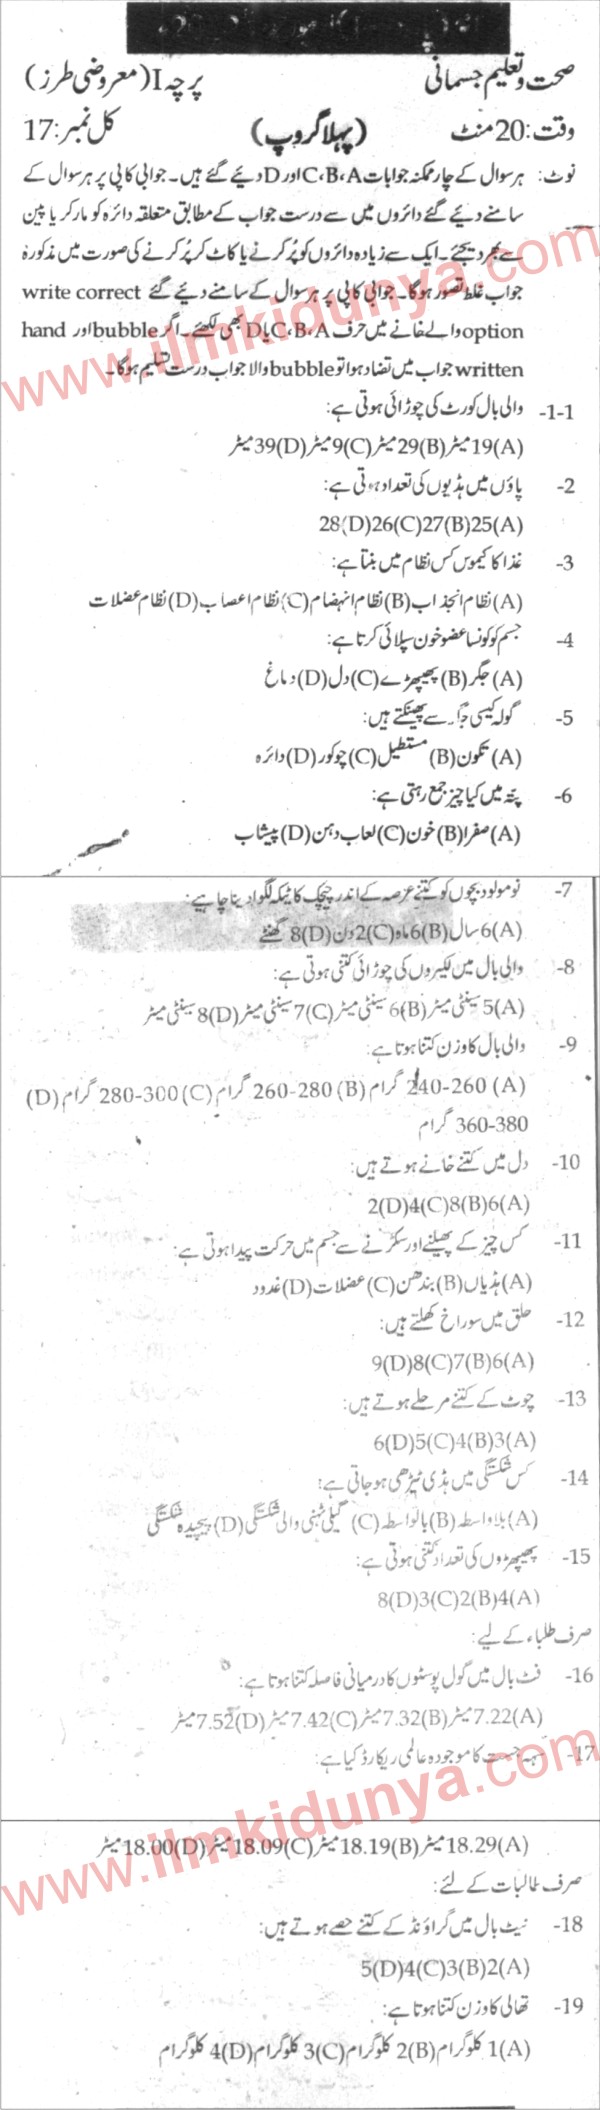 صحت و تعلیم جسمانی پرچہ I (معروضی طرز)
وقت: 20 منٹ (پہلا گروپ) کل نمبر: 17
نوٹ: ہر سوال کے چار ممکنہ جوابات C، B، A اور D دیئے گئے ہیں۔ جوابی کاپی پر ہر سوال کے
سامنے دیئے گئے دائروں میں سے درست جواب کے مطابق متعلقہ دائرہ کو مارکر یا پین
سے بھر دیجئے۔ ایک سے زیادہ دائروں کو پُر کرنے یا کاٹ کر پُر کرنے کی صورت میں مذکورہ
جواب غلط تصور ہوگا۔ جوابی کاپی پر ہر سوال کے سامنے دیئے گئے write correct
option والے خانے میں حرف C، B، A یا D بھی لکھئے۔ اگر bubble اور hand
written جواب میں تضاد ہوا تو bubble والا جواب درست تسلیم ہوگا۔
1-1- والی بال کورٹ کی چوڑائی ہوتی ہے:
(A) 19 میٹر (B) 29 میٹر (C) 9 میٹر (D) 39 میٹر
2- پاؤں میں ہڈیوں کی تعداد ہوتی ہے:
(A) 25 (B) 27 (C) 26 (D) 28
3- غذا کا کیموس کس نظام میں بنتا ہے:
(A) نظام انجذاب (B) نظام انہضام (C) نظام اعصاب (D) نظام عضلات
4- جسم کو کونسا عضو خون سپلائی کرتا ہے:
(A) جگر (B) پھیپھڑے (C) دل (D) دماغ
5- گولہ کیسی جگہ سے پھینکتے ہیں:
(A) تکون (B) مستطیل (C) چوکور (D) دائرہ
6- پتہ میں کیا چیز جمع رہتی ہے:
(A) صفرا (B) خون (C) لعاب دہن (D) پیشاب
7- نومولود بچوں کو کتنے عرصہ کے اندر چیچک کا ٹیکہ لگوا دینا چاہیے:
(A) 6 سال (B) 6 ماہ (C) 2 دن (D) 8 گھنٹے
8- والی بال میں لکیروں کی چوڑائی کتنی ہوتی ہے:
(A) 5 سینٹی میٹر (B) 6 سینٹی میٹر (C) 7 سینٹی میٹر (D) 8 سینٹی میٹر
9- والی بال کا وزن کتنا ہوتا ہے:
(A) 240-260 گرام (B) 260-280 گرام (C) 280-300 گرام (D)
360-380 گرام
10- دل میں کتنے خانے ہوتے ہیں:
(A) 6 (B) 8 (C) 4 (D) 2
11- کس چیز کے پھیلنے اور سکڑنے سے جسم میں حرکت پیدا ہوتی ہے:
(A) ہڈیاں (B) بندھن (C) عضلات (D) غدود
12- حلق میں سوراخ کھلتے ہیں:
(A) 6 (B) 7 (C) 8 (D) 9
13- چوٹ کے کتنے مرحلے ہوتے ہیں:
(A) 3 (B) 4 (C) 5 (D) 6
14- کس شکستگی میں ہڈی ٹیڑھی ہو جاتی ہے:
(A) بلاواسطہ (B) بالواسطہ (C) گیلی ٹہنی والی شکستگی (D) پیچیدہ شکستگی
15- پھیپھڑوں کی تعداد کتنی ہوتی ہے:
(A) 4 (B) 2 (C) 3 (D) 8
صرف طلباء کے لیے:
16- فٹ بال میں گول پوسٹوں کا درمیانی فاصلہ کتنا ہوتا ہے:
(A) 7.22 میٹر (B) 7.32 میٹر (C) 7.42 میٹر (D) 7.52 میٹر
17- سہہ جست کا موجودہ عالمی ریکارڈ کیا ہے:
(A) 18.29 میٹر (B) 18.19 میٹر (C) 18.09 میٹر (D) 18.00 میٹر
صرف طالبات کے لئے:
18- نیٹ بال میں گراؤنڈ کے کتنے حصے ہوتے ہیں:
(A) 2 (B) 3 (C) 4 (D) 5
19- تھالی کا وزن کتنا ہوتا ہے:
(A) 1 کلوگرام (B) 2 کلوگرام (C) 3 کلوگرام (D) 4 کلوگرام
www.ilmkidunya.com
www.ilmkidunya.com